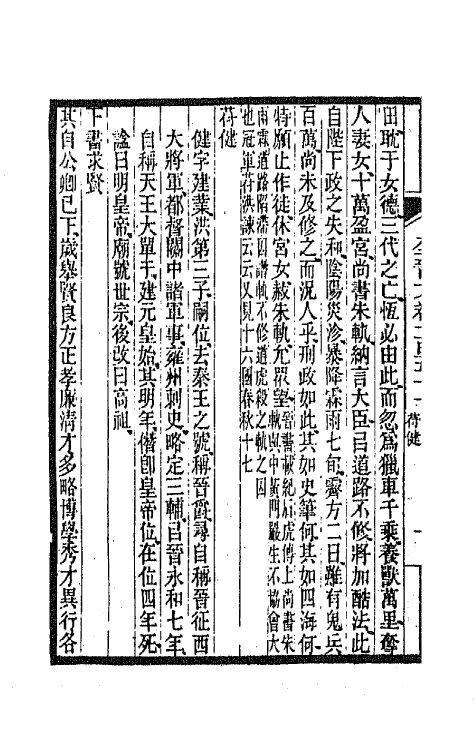 全晉文卷一百五十一 苻健 一
田耽于女德三代之亡恆必由此而忽爲獵車千乘養獸萬里奪
人妻女十萬盈宮尚書朱軌納言大臣㠯道路不修將加酷法此
自陛下政之失和陰陽災沴暴降霖雨七旬霽方二日雖有鬼兵
百萬尚未及修之而況人乎刑政如此其如史筆何其如四海何
特願止作徒休宮女赦朱軌允眾望晉書載紀石虎傳上尚書朱軌與中黃門嚴生不協會大
雨霖道路陷滯因譖軌不修道虎殺之軌之囚
也冠軍苻洪諫云云又見十六國春秋十七
苻健
健字建業洪第三子嗣位去秦王之號稱晉爵尋自稱晉征西
大將軍都督關中諸軍事雍州刺史略定三輔㠯晉永和七年
自稱天王大單于建元皇始其明年僭卽皇帝位在位四年死
諡曰明皇帝廟號世宗後改曰高祖
下書求賢
其自公卿已下歲舉賢良方正孝廉清才多略博學秀才異行各